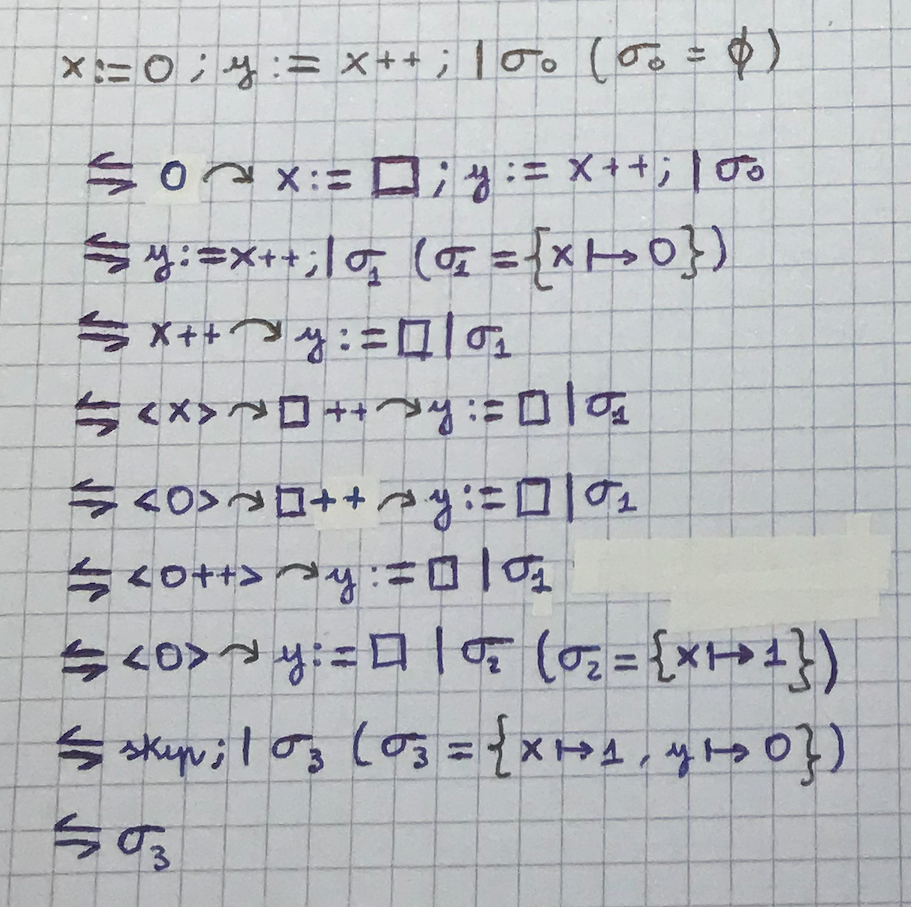 x:=0; y:= x++; | σ₀ (σ₀ = ϕ)
⇋ 0 ↷ x:= □; y:= x++; | σ₀
⇋ y:=x++; | σ₁ (σ₁ = {x ↦ 0})
⇋ x++ ↷ y:= □ | σ₁
⇋ <x> ↷ □ ++ ↷ y:= □ | σ₁
⇋ <0> ↷ □++ ↷ y:= □ | σ₁
⇋ <0++> ↷ y:= □ | σ₁
⇋ <0> ↷ y:= □ | σ₂ (σ₂ = {x ↦ 1})
⇋ skip; | σ₃ (σ₃ = {x ↦ 1, y ↦ 0})
⇋ σ₃